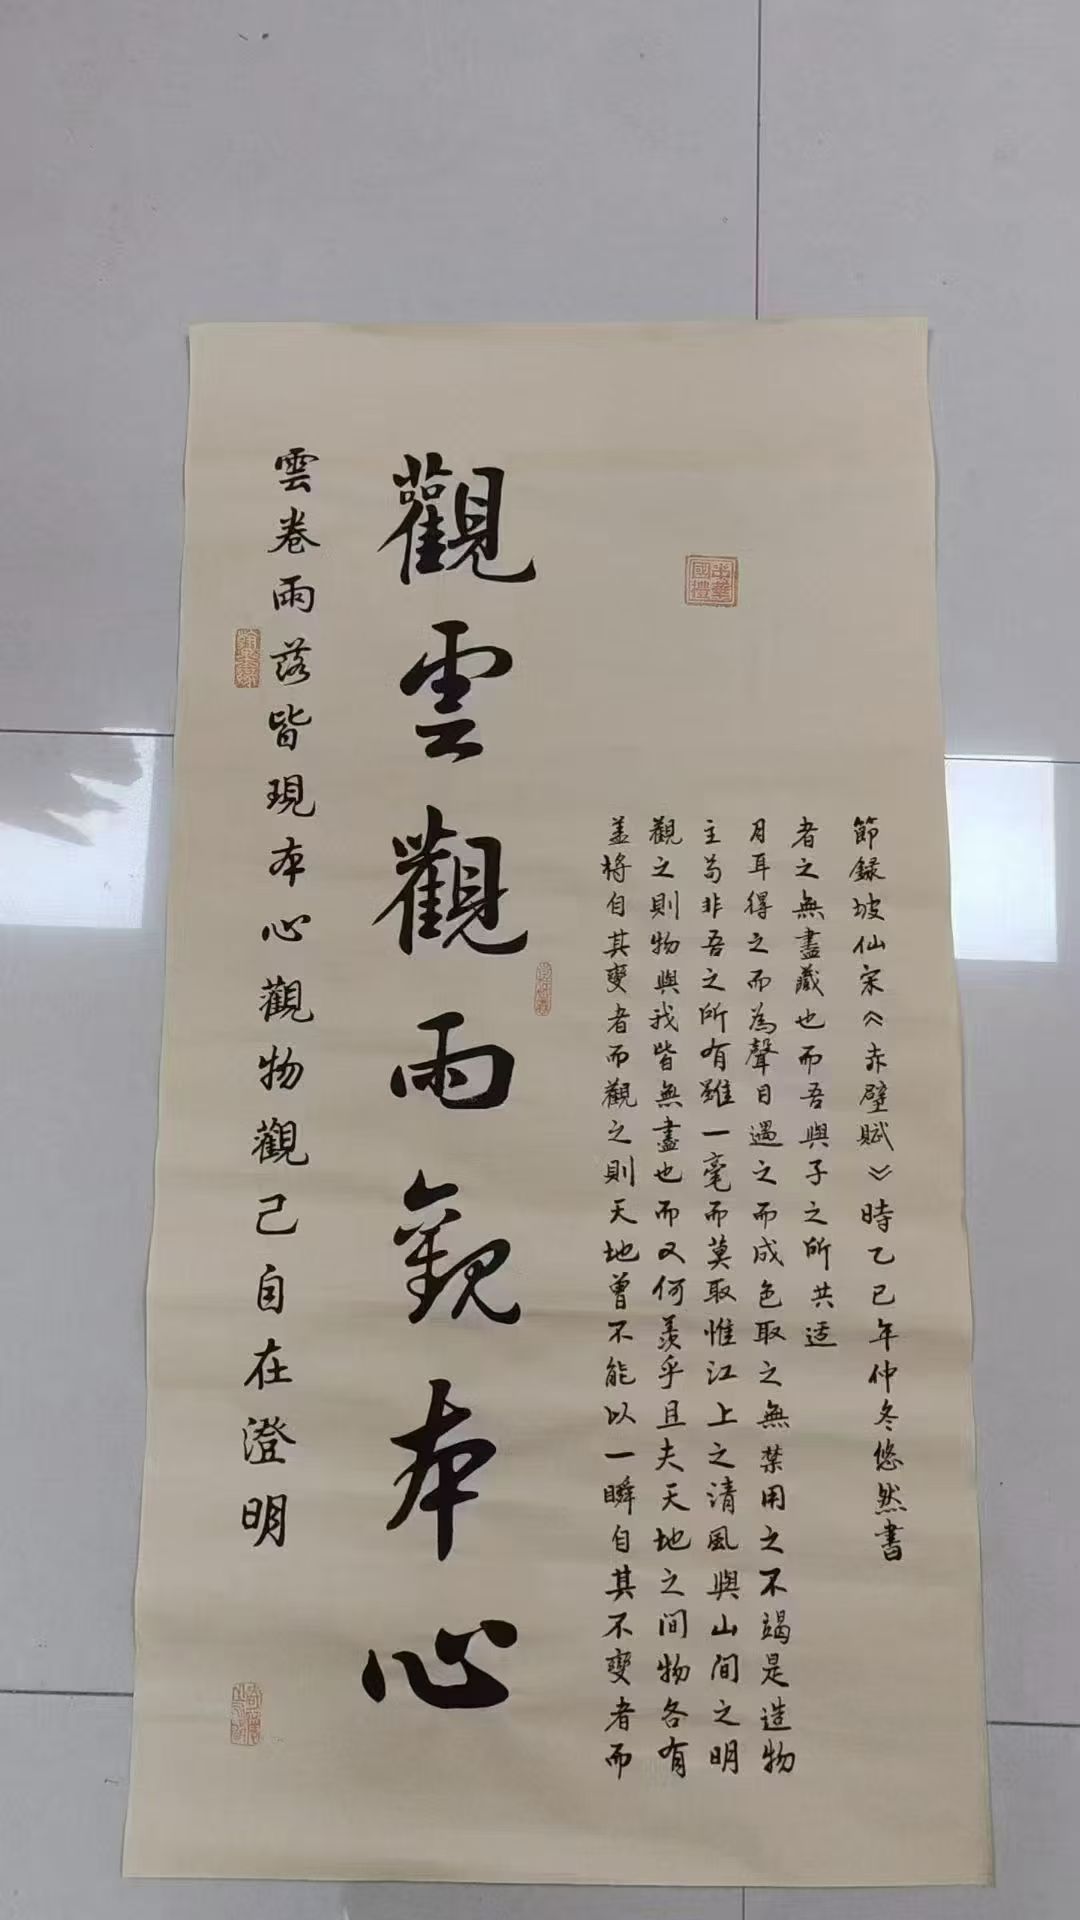 雲卷雨落皆現本心觀物觀己自在澄明
觀雲觀雨觀本心
盖將自其變者而觀之則天地曾不能以一瞬自其不變者而
觀之則物與我皆無盡也而又何羨乎且夫天地之間物各有
主苟非吾之所有雖一毫而莫取惟江上之清風與山間之明
月耳得之而為聲目遇之而成色取之無禁用之不竭是造物
者之無盡藏也而吾與子之所共适
節録坡仙宋《赤壁賦》時乙巳年仲冬悠然書